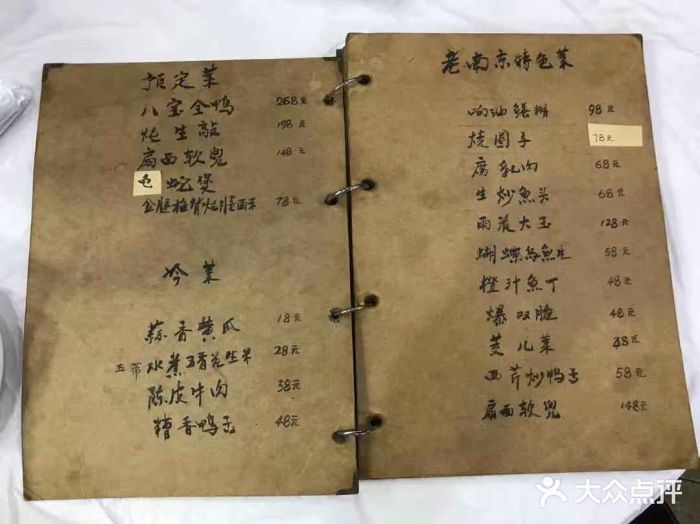 预定菜
八宝全鸭 268元
炖生敲 198元
扁西软兜 148元
龟蛇煲
78元
冷菜
蒜香黄瓜 18元
水煮五香花生米 28元
陈皮牛肉 38元
糟香鸭舌 48元
老南京特色菜
响油鳝糊 98元
烧圈子 78元
腐乳肉 68元
生炒鱼头 68元
雨花大玉 128元
蝴蝶乌魚片 58元
橙汁魚丁 48元
爆双脆 48元
茭儿菜 48元
西芹炒鸭舌 58元
扁西软兜 148元
大众点评